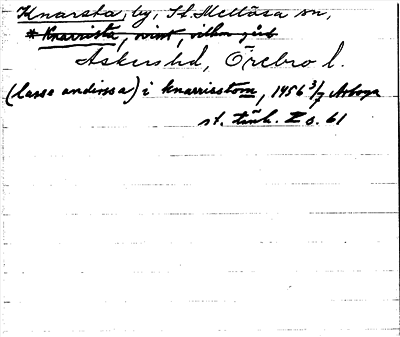 Knarsta, by, St. Mellösa sn,
*Knarrista,
Askers hd, Örebro l.
(lasse andirssa) i knarrisstom, 1456 3/7 Arboga
st. tänk. I s. 61